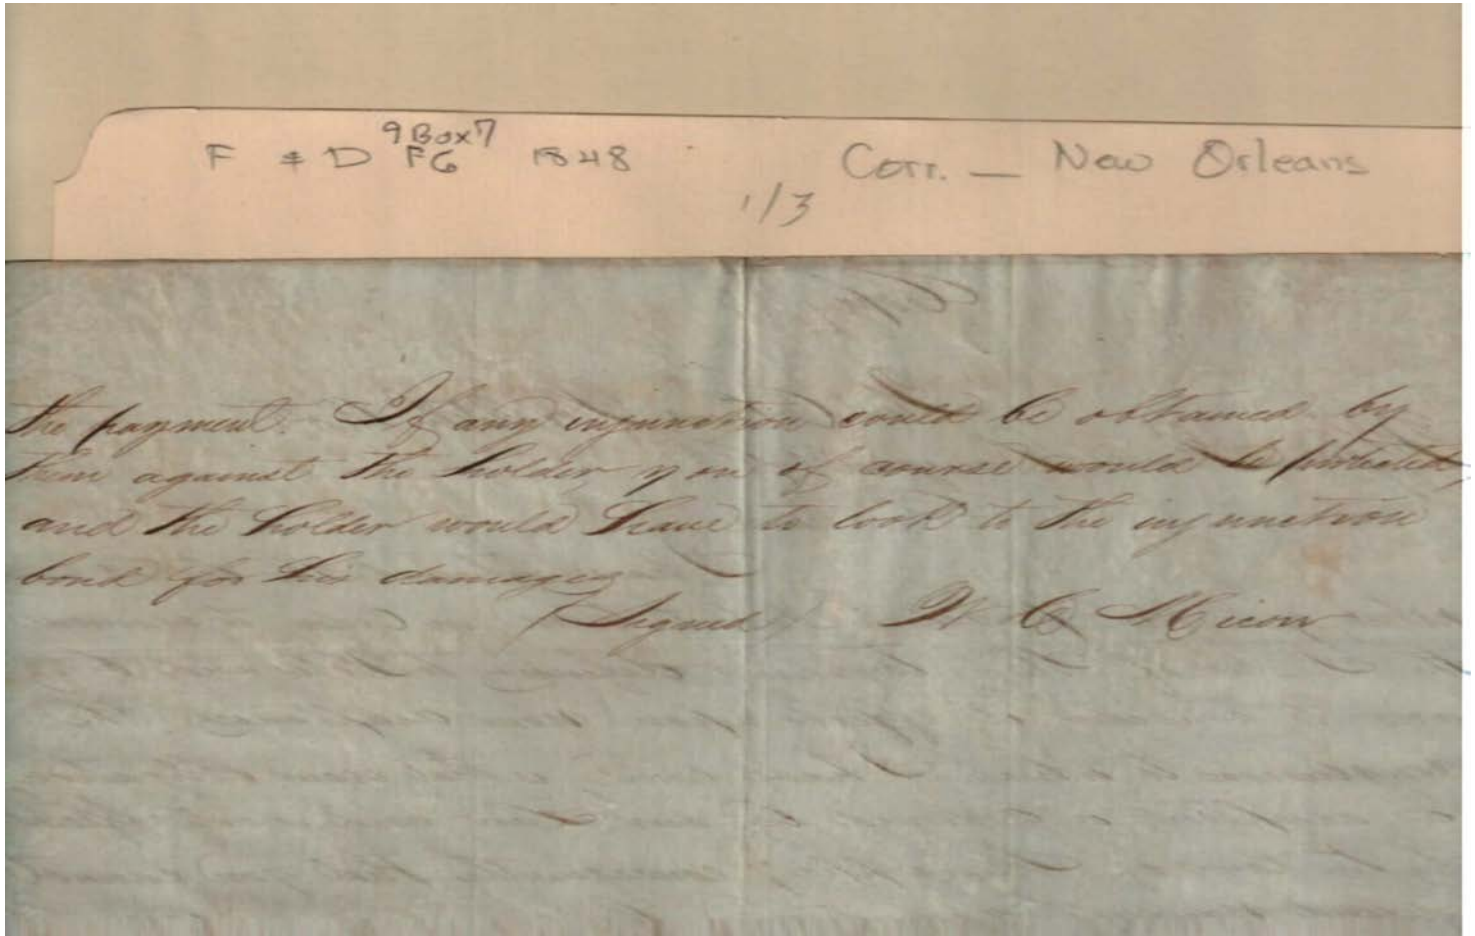 9 Box 7
F & D F6 1848 Corr. — New Orleans
1/3
the payment. If any injunction could be obtained by
them against the holder you of course would be protected,
and the holder would have to look to the injunction
bond for his damages
Signed W C Micou